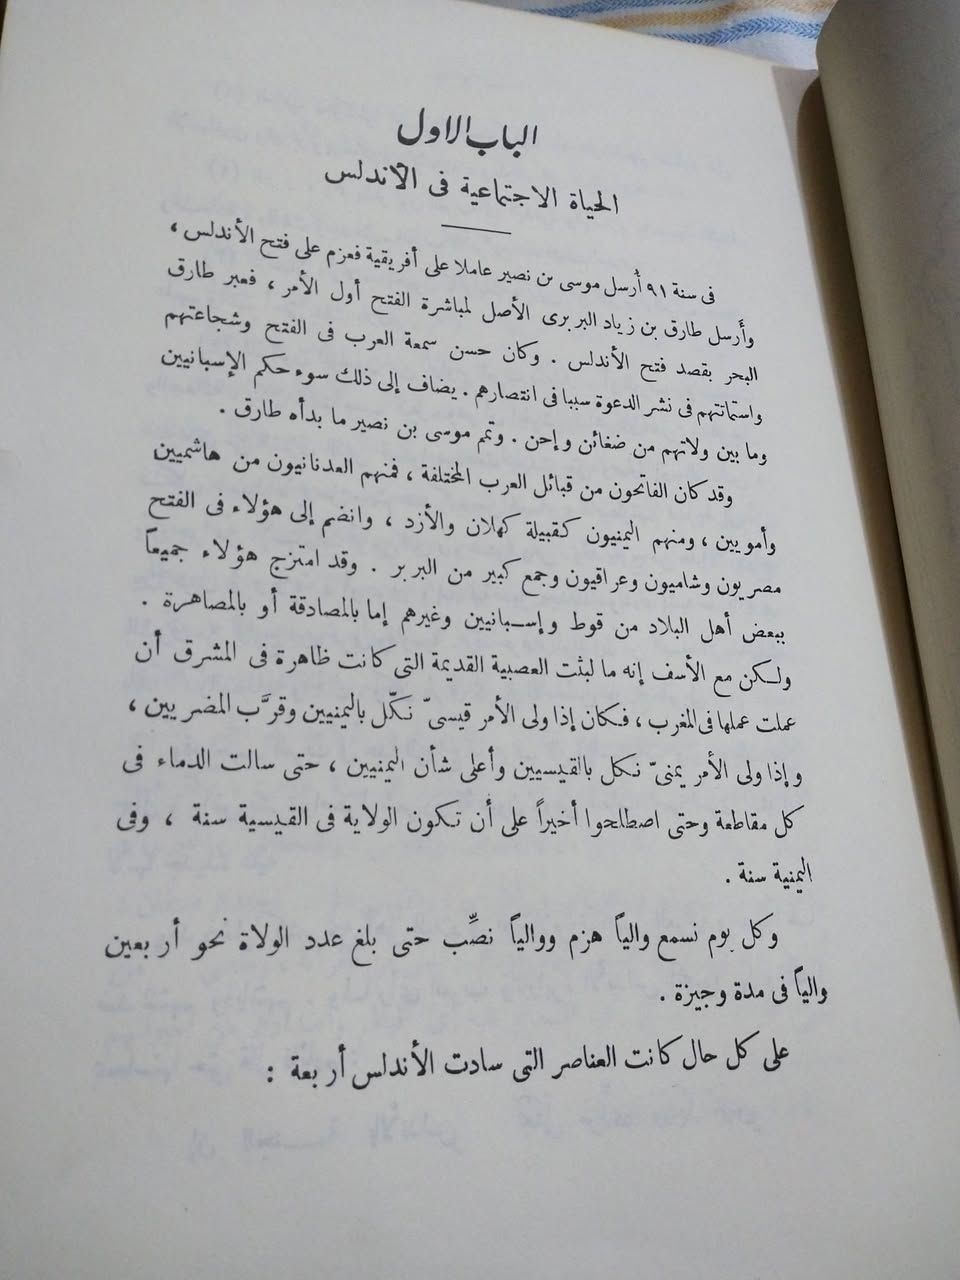 الباب الاول
الحياة الاجتماعية فى الأندلس
فى سنة ٩١ أرسل موسى بن نصير عاملا على أفريقية فعزم على فتح الأندلس ،
وأرسل طارق بن زياد البربرى الأصل لمباشرة الفتح أول الأمر ، فعبر طارق
البحر بقصد فتح الأندلس . وكان حسن سمعة العرب فى الفتح وشجاعتهم
واستماتتهم فى نشر الدعوة سببا فى انتصارهم . يضاف إلى ذلك سوء حكم الإسبانيين
وما بين ولاتهم من ضغائن وإحن . وتمم موسى بن نصير ما بدأه طارق .
وقد كان الفاتحون من قبائل العرب المختلفة ، فمنهم العدنانيون من هاشميين
وأمويين ، ومنهم اليمنيون كقبيلة كهلان والأزد ، وانضم إلى هؤلاء فى الفتح
مصريون وشاميون وعراقيون وجمع كبير من البربر . وقد امتزج هؤلاء جميعاً
ببعض أهل البلاد من قوط وإسبانيين وغيرهم إما بالمصادقة أو بالمصاهرة .
ولكن مع الأسف إنه ما لبثت العصبية القديمة التى كانت ظاهرة فى المشرق أن
عملت عملها فى المغرب ، فكان إذا ولى الأمر قيسىّ نكّل باليمنيين وقرَّب المضريين ،
وإذا ولى الأمر يمنىّ نكل بالقيسيين وأعلى شأن اليمنيين ، حتى سالت الدماء فى
كل مقاطعة وحتى اصطلحوا أخيراً على أن تكون الولاية فى القيسية سنة ، وفى
اليمنية سنة .
وكل يوم نسمع والياً هزم ووالياً نصِّب حتى بلغ عدد الولاة نحو أربعين
والياً فى مدة وجيزة .
على كل حال كانت العناصر التى سادت الأندلس أربعة :